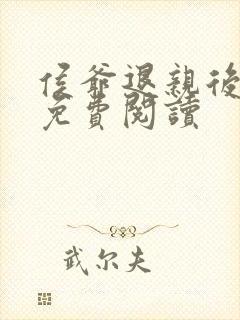 侯爺退親後
免費閱讀
武尔夫